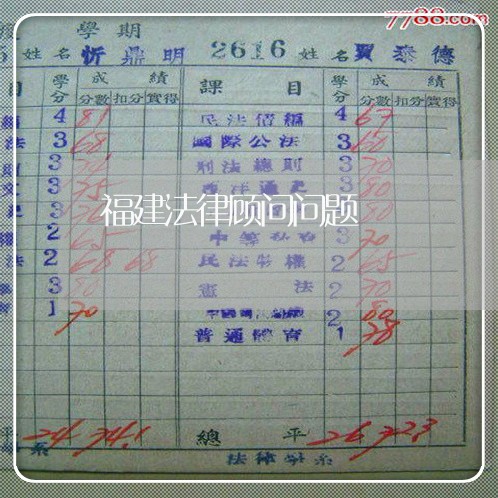 7788.com
學期
姓名 忻鼎明 2616 姓名 賈泰德
目 學分 成績 分數 扣分 實得 課目 學分 成績 分數 扣分 實得
4 81 民法債編 4 67
法 3 68 國際公法 3 60
3 刑法總則 3 70
3 75 西洋通史 3 80
福建法律顾问问题
2 65 3 70
法 2 68 68 民法物權 2 65
3 80 憲法 2 70
1 70 2 80
普通體育 1 78
平 24 74.1 總平 26 72.3
系 法律學系